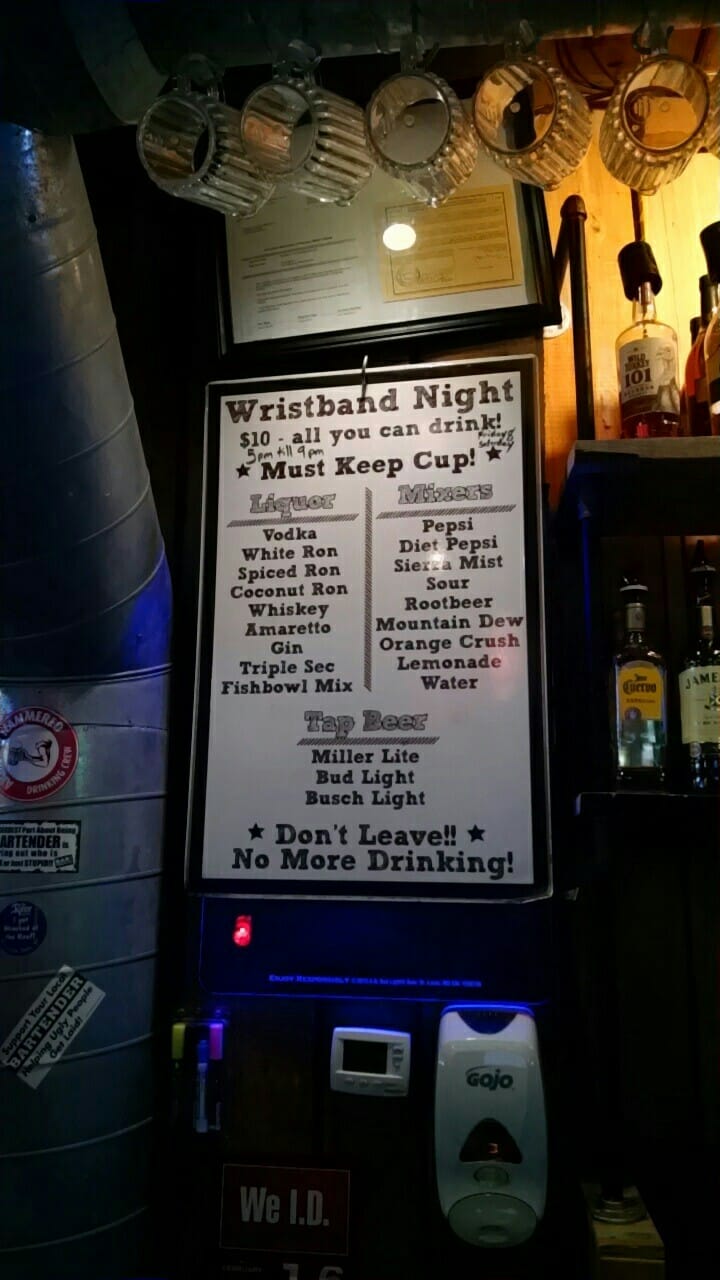 WILD TURKEY
101
Wristband Night
$10 - all you can drink!
5pm till 9pm
Friday & Saturday
★ Must Keep Cup! ★
Liquor
Vodka
White Ron
Spiced Ron
Coconut Ron
Whiskey
Amaretto
Gin
Triple Sec
Fishbowl Mix
Mixers
Pepsi
Diet Pepsi
Sierra Mist
Sour
Rootbeer
Mountain Dew
Orange Crush
Lemonade
Water
Tap Beer
Miller Lite
Bud Light
Busch Light
★ Don't Leave!! ★
No More Drinking!
Cuervo
JAMES
HAMMERED
DRINKING CREW
Part About Being
BARTENDER is
out who is
or Just STUPID!!
Support Your Local
BARTENDER
Helping Ugly People
Get Laid!
ENJOY RESPONSIBLY
GOJO
We I.D.
FEBRUARY
16